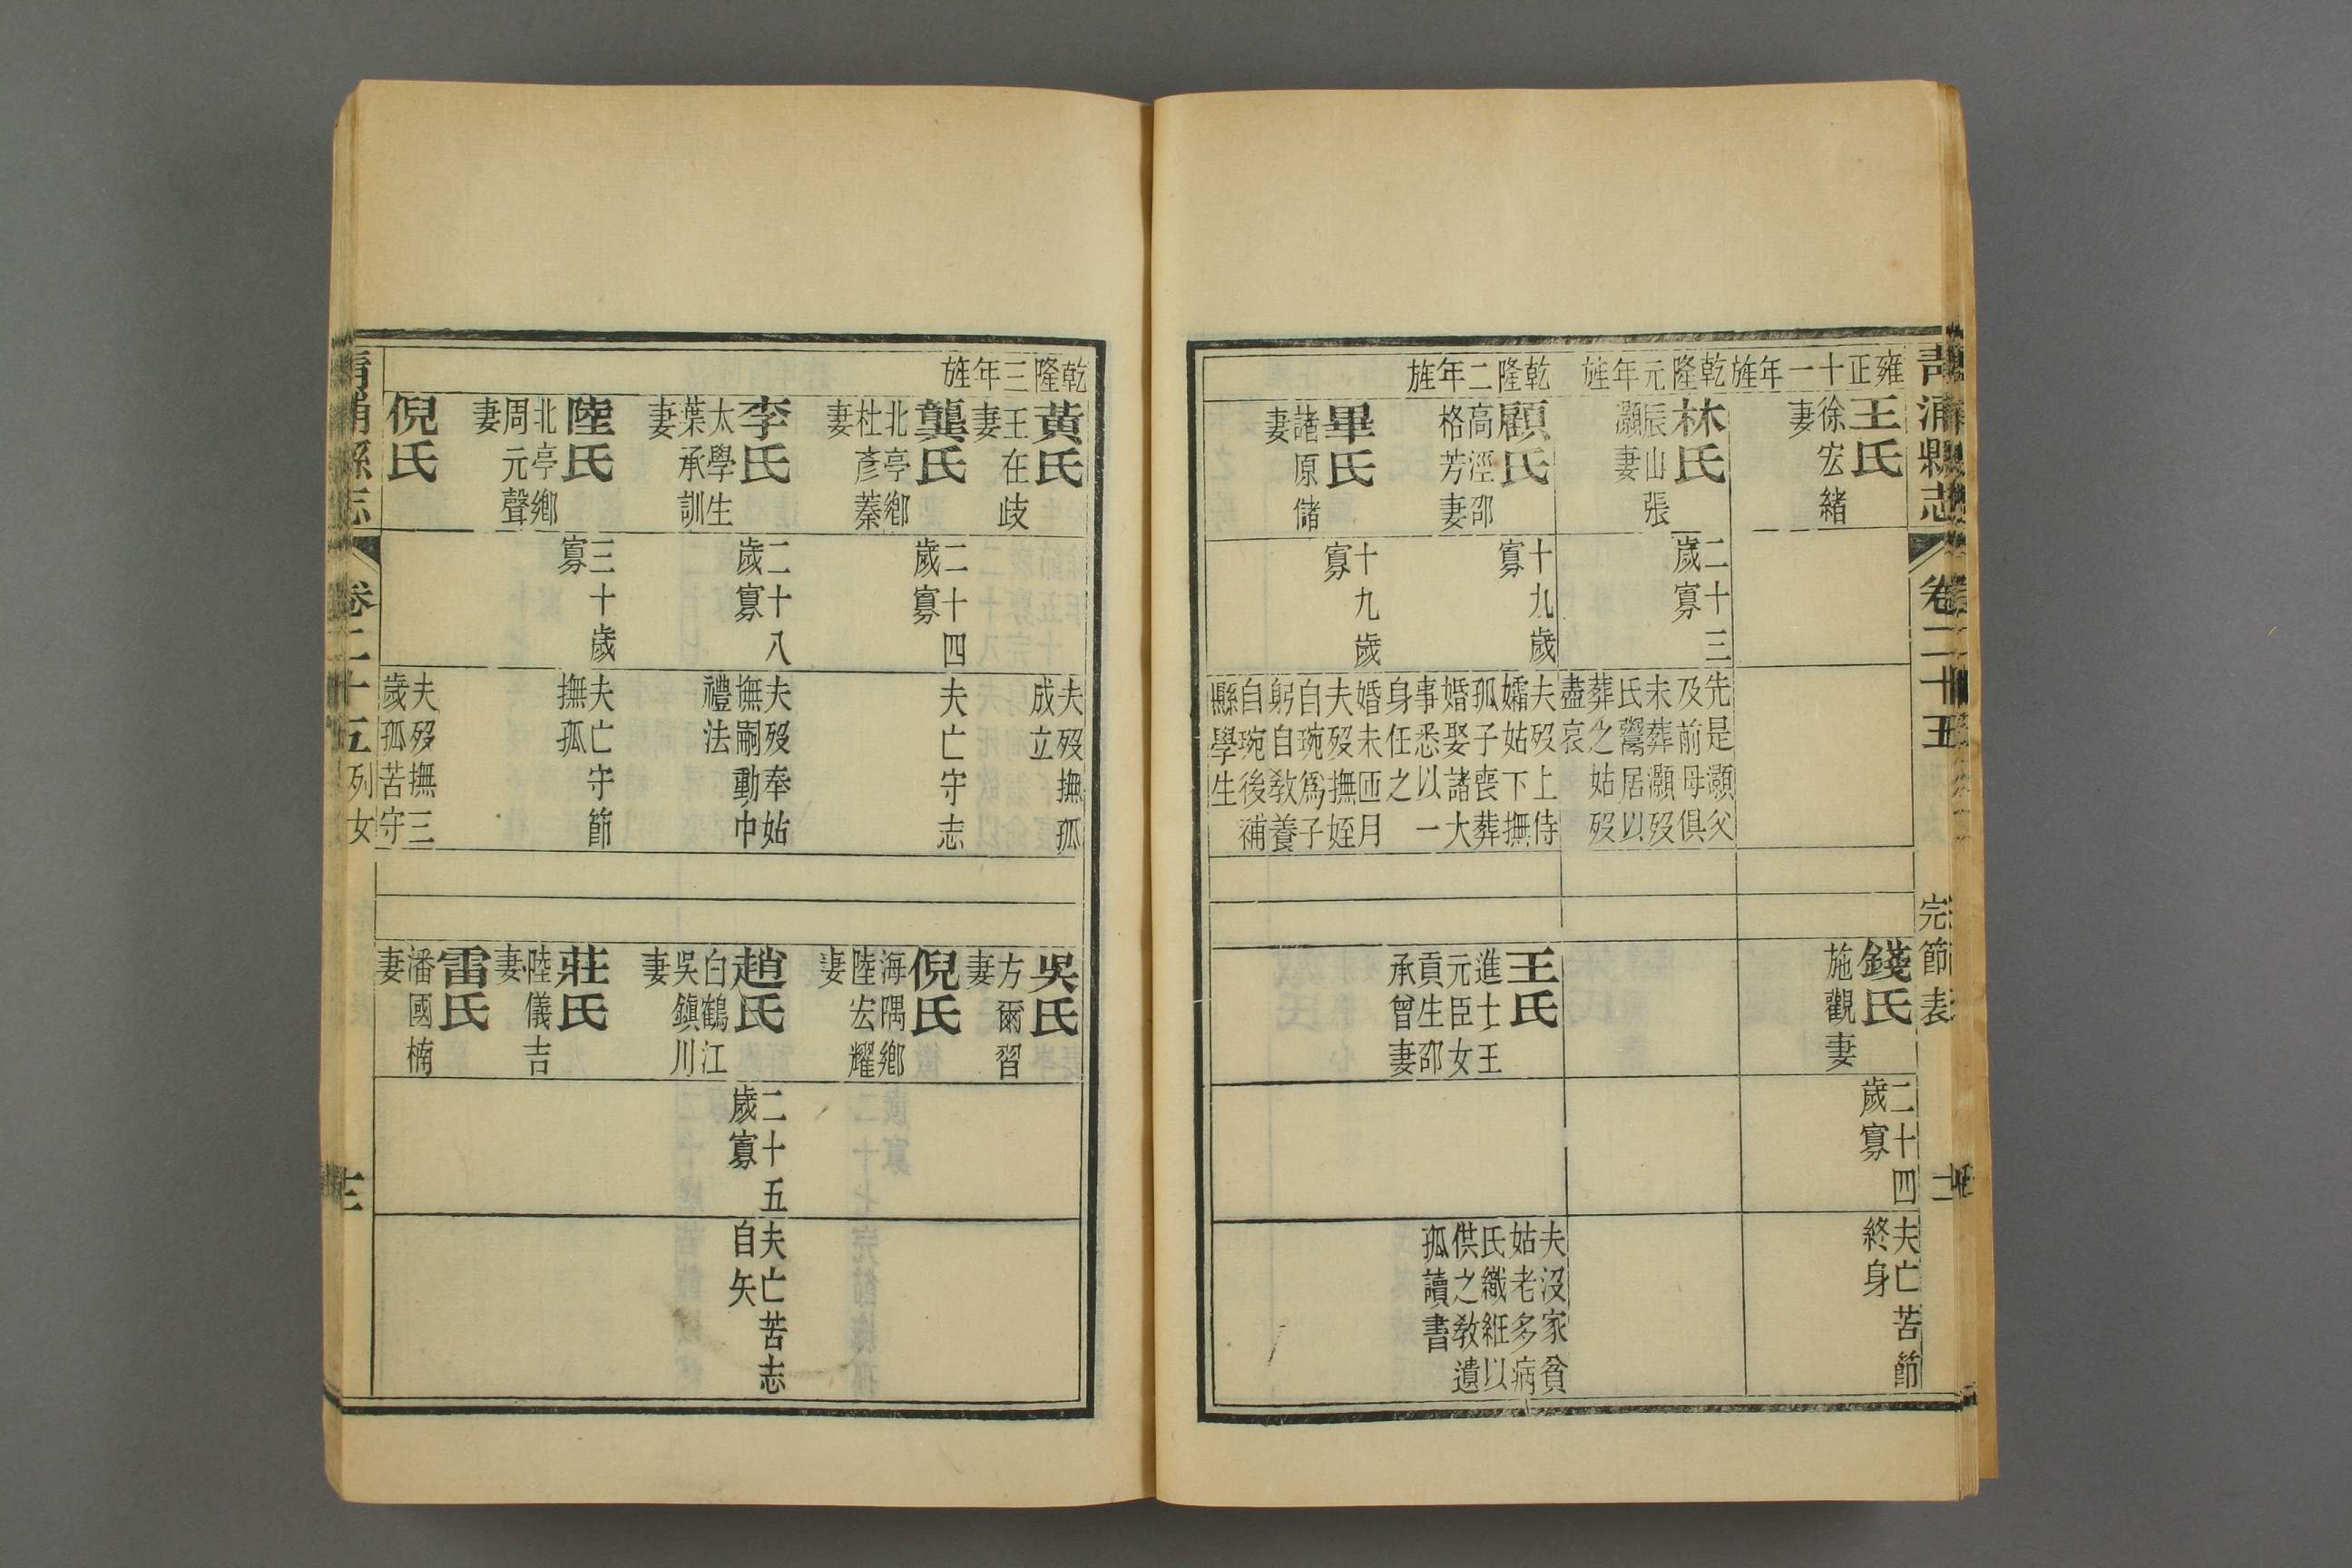 青浦縣志
卷二十五
完節表
雍正十一年旌
王氏
徐宏緒
妻
乾隆元年旌
林氏
辰山張
灝妻
二十三
歲寡
先是灝父
及前母俱
未葬灝歿
氏鬻居以
葬之姑歿
盡哀
乾隆二年旌
顧氏
高涇邵
格芳妻
十九歲
寡
夫歿上侍
孀姑下撫
孤子喪葬
婚娶諸大
事悉以一
身任之
畢氏
諸原儲
妻
十九歲
寡
婚未匝月
夫歿撫姪
自琬爲子
躬自教養
自琬後補
縣學生
錢氏
施觀妻
二十四
歲寡
夫亡苦節
終身
王氏
進士王
元臣女
貢生邵
承曾妻
夫沒家貧
姑老多病
氏織絍以
供之教遺
孤讀書
乾隆三年旌
黃氏
王在歧
妻
夫歿撫孤
成立
龔氏
北亭鄉
杜彥蓁
妻
二十四
歲寡
夫亡守志
李氏
太學生
葉承訓
妻
二十八
歲寡
夫歿奉姑
撫嗣動中
禮法
陸氏
北亭鄉
周元聲
妻
三十歲
寡
夫亡守節
撫孤
倪氏
夫歿撫三
歲孤苦守
吳氏
方爾習
妻
倪氏
海隅鄉
陸宏耀
妻
趙氏
白鶴江
吳鎮川
妻
二十五
歲寡
夫亡苦志
自矢
莊氏
陸儀吉
妻
雷氏
潘國楠
妻
青浦縣志
卷二十五
列女